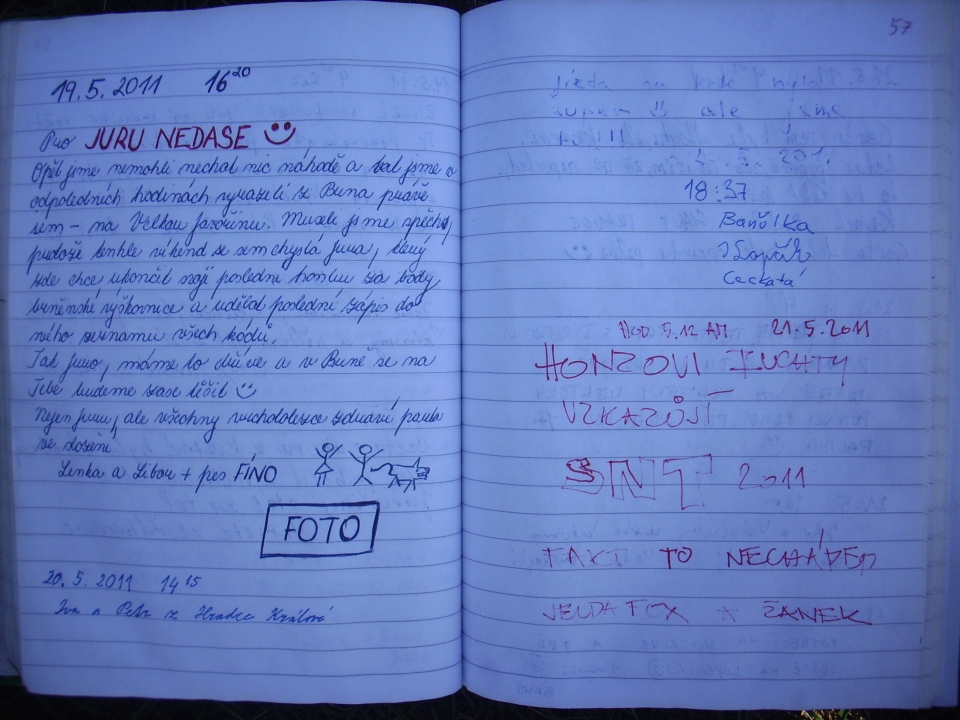 19.5.2011 16²⁰
Pro JURU NEDASE
Opět jsme nemohli nechat nic náhodě a tak jsme v
odpoledních hodinách vyrazili z Brna právě
sem – na Velkou Javořinu. Museli jsme spěchat,
protože tenhle víkend se sem chystá Jura, který
zde chce ukončit svoji poslední honbu za body
brněnské výškovnice a udělat poslední zápis do
svého seznamu všech kódů.
Tak Juro, máme to dříve a v Brně se na
Tebe budeme zase těšit
Nejen Juru, ale všechny vrchololezce zdraví parta
ve složení
Lenka a Libor + pes FÍNO
FOTO
20.5.2011 14¹⁵
Iva a Petr z Hradce Králové
57
jízda na kole byla
super ale jsme
18:37
Baňůlka
Ceckatá
HOD 5.12 AM 21.5.2011
HONZOVI FUCHTY
VZKAZŮJÍ
SNT 2011
FAKT TO
A ŽANEK